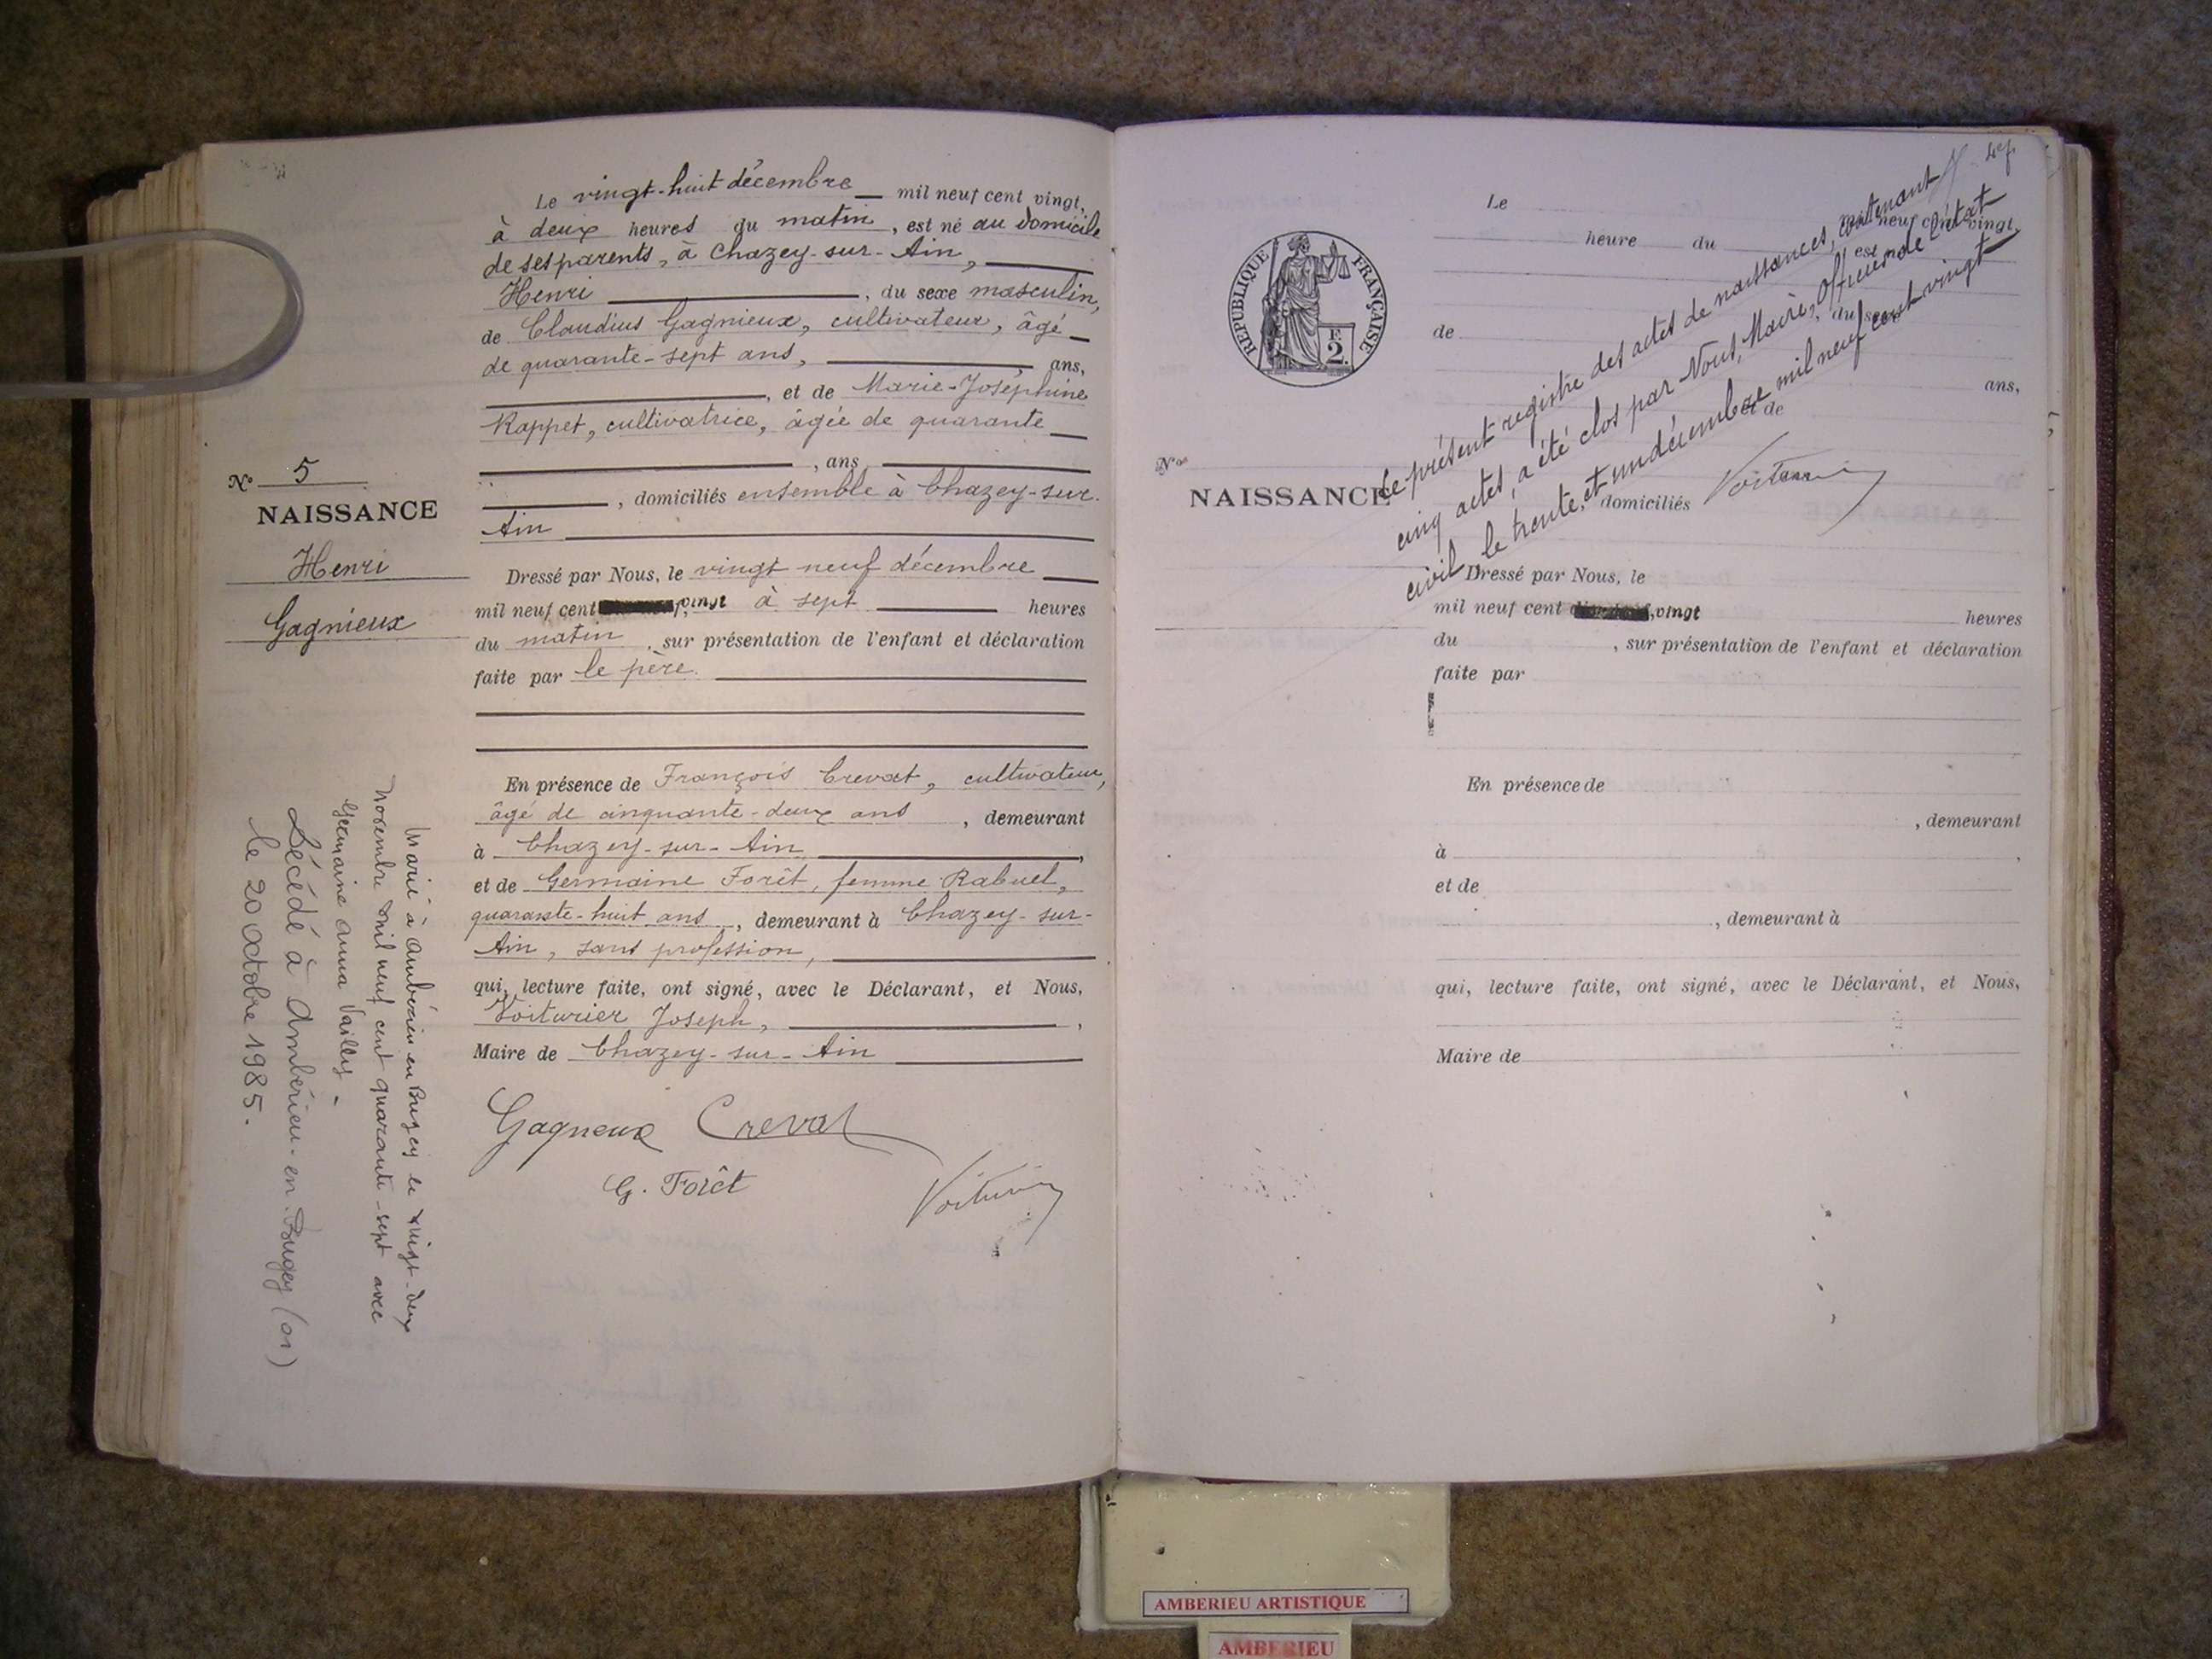 Le vingt-huit décembre mil neuf cent vingt,
à deux heures du matin, est né au domicile
de ses parents, à Chazey-sur-Ain,
Henri, du sexe masculin,
de Claudius Gagnieux, cultivateur, âgé
de quarante-sept ans, ans,
, et de Marie-Joséphine
Rappet, cultivatrice, âgée de quarante
, ans
, domiciliés ensemble à Chazey-sur-
Ain
Nº 5
NAISSANCE
Henri
Gagnieux
Dressé par Nous, le vingt neuf décembre
mil neuf cent vingt à sept heures
du matin, sur présentation de l'enfant et déclaration
faite par le père.
En présence de François Crevat, cultivateur,
âgé de cinquante-deux ans, demeurant
à Chazey-sur-Ain,
et de Germaine Forêt, femme Rabuel,
quarante-huit ans, demeurant à Chazey-sur-
Ain, sans profession,
qui, lecture faite, ont signé, avec le Déclarant, et Nous,
Voiturier Joseph,
Maire de Chazey-sur-Ain
Gagneux Crevat
G. Forêt Voiturier
Marié à Ambérieu en Bugey le vingt-deux
Novembre mil neuf cent quarante-sept avec
Germaine Anna Vailly -
Décédé à Ambérieu-en-Bugey (01)
le 20 octobre 1985.
RÉPUBLIQUE FRANÇAISE
E
2.
Le
neuf cent vingt,
heure du est
du sexe
de
ans,
et de
Nº
NAISSANCE
domiciliés
Le présent registre des actes de naissances, contenant
cinq actes, a été clos par Nous, Maire, Officier de l'état
civil le trente et un décembre mil neuf cent vingt
Voiturier
Dressé par Nous, le
mil neuf cent vingt heures
du , sur présentation de l'enfant et déclaration
faite par
En présence de
, demeurant
à ,
et de
, demeurant à
qui, lecture faite, ont signé, avec le Déclarant, et Nous,
Maire de
AMBERIEU ARTISTIQUE
AMBERIEU